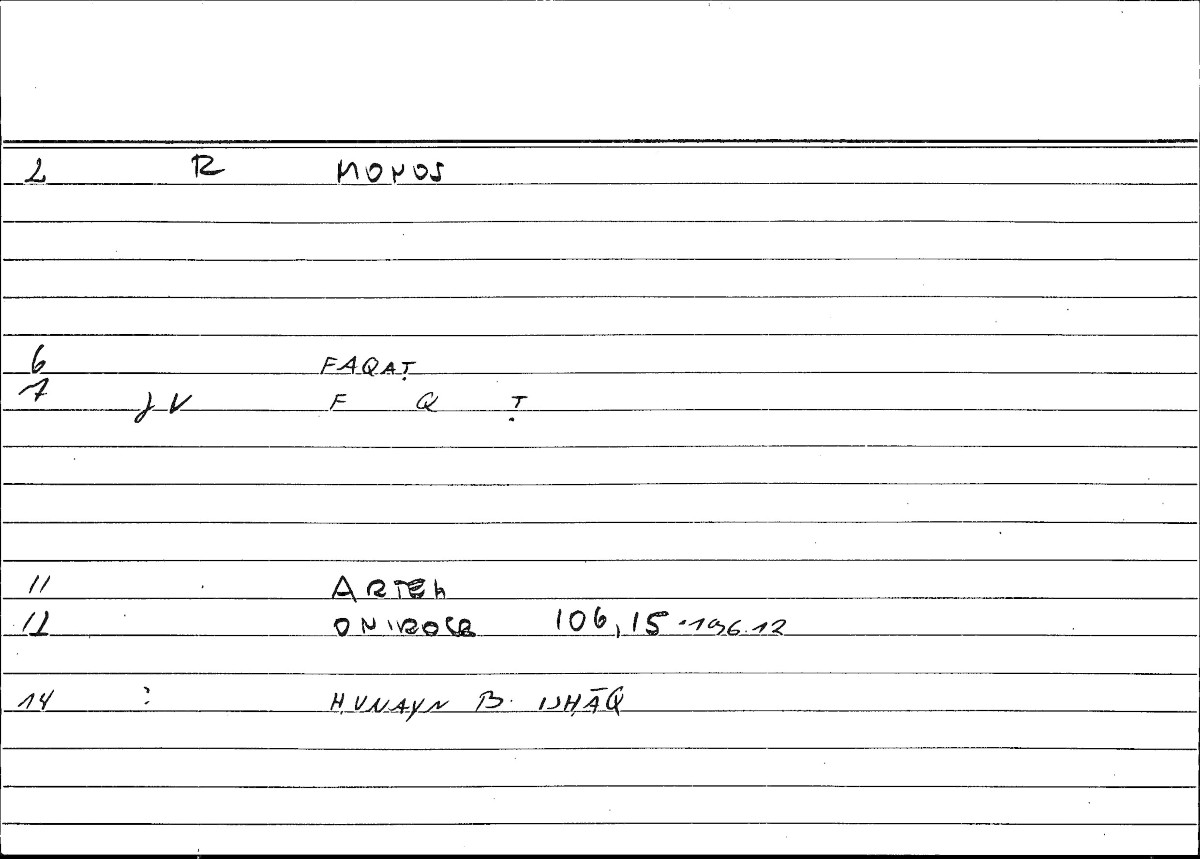 2 R MONOS
6 FAQAṬ
7 JV F Q Ṭ
11 ARTEM
12 ONIROCR 106,15 - 196.12
14 : ḤUNAYN B. ISḤĀQ